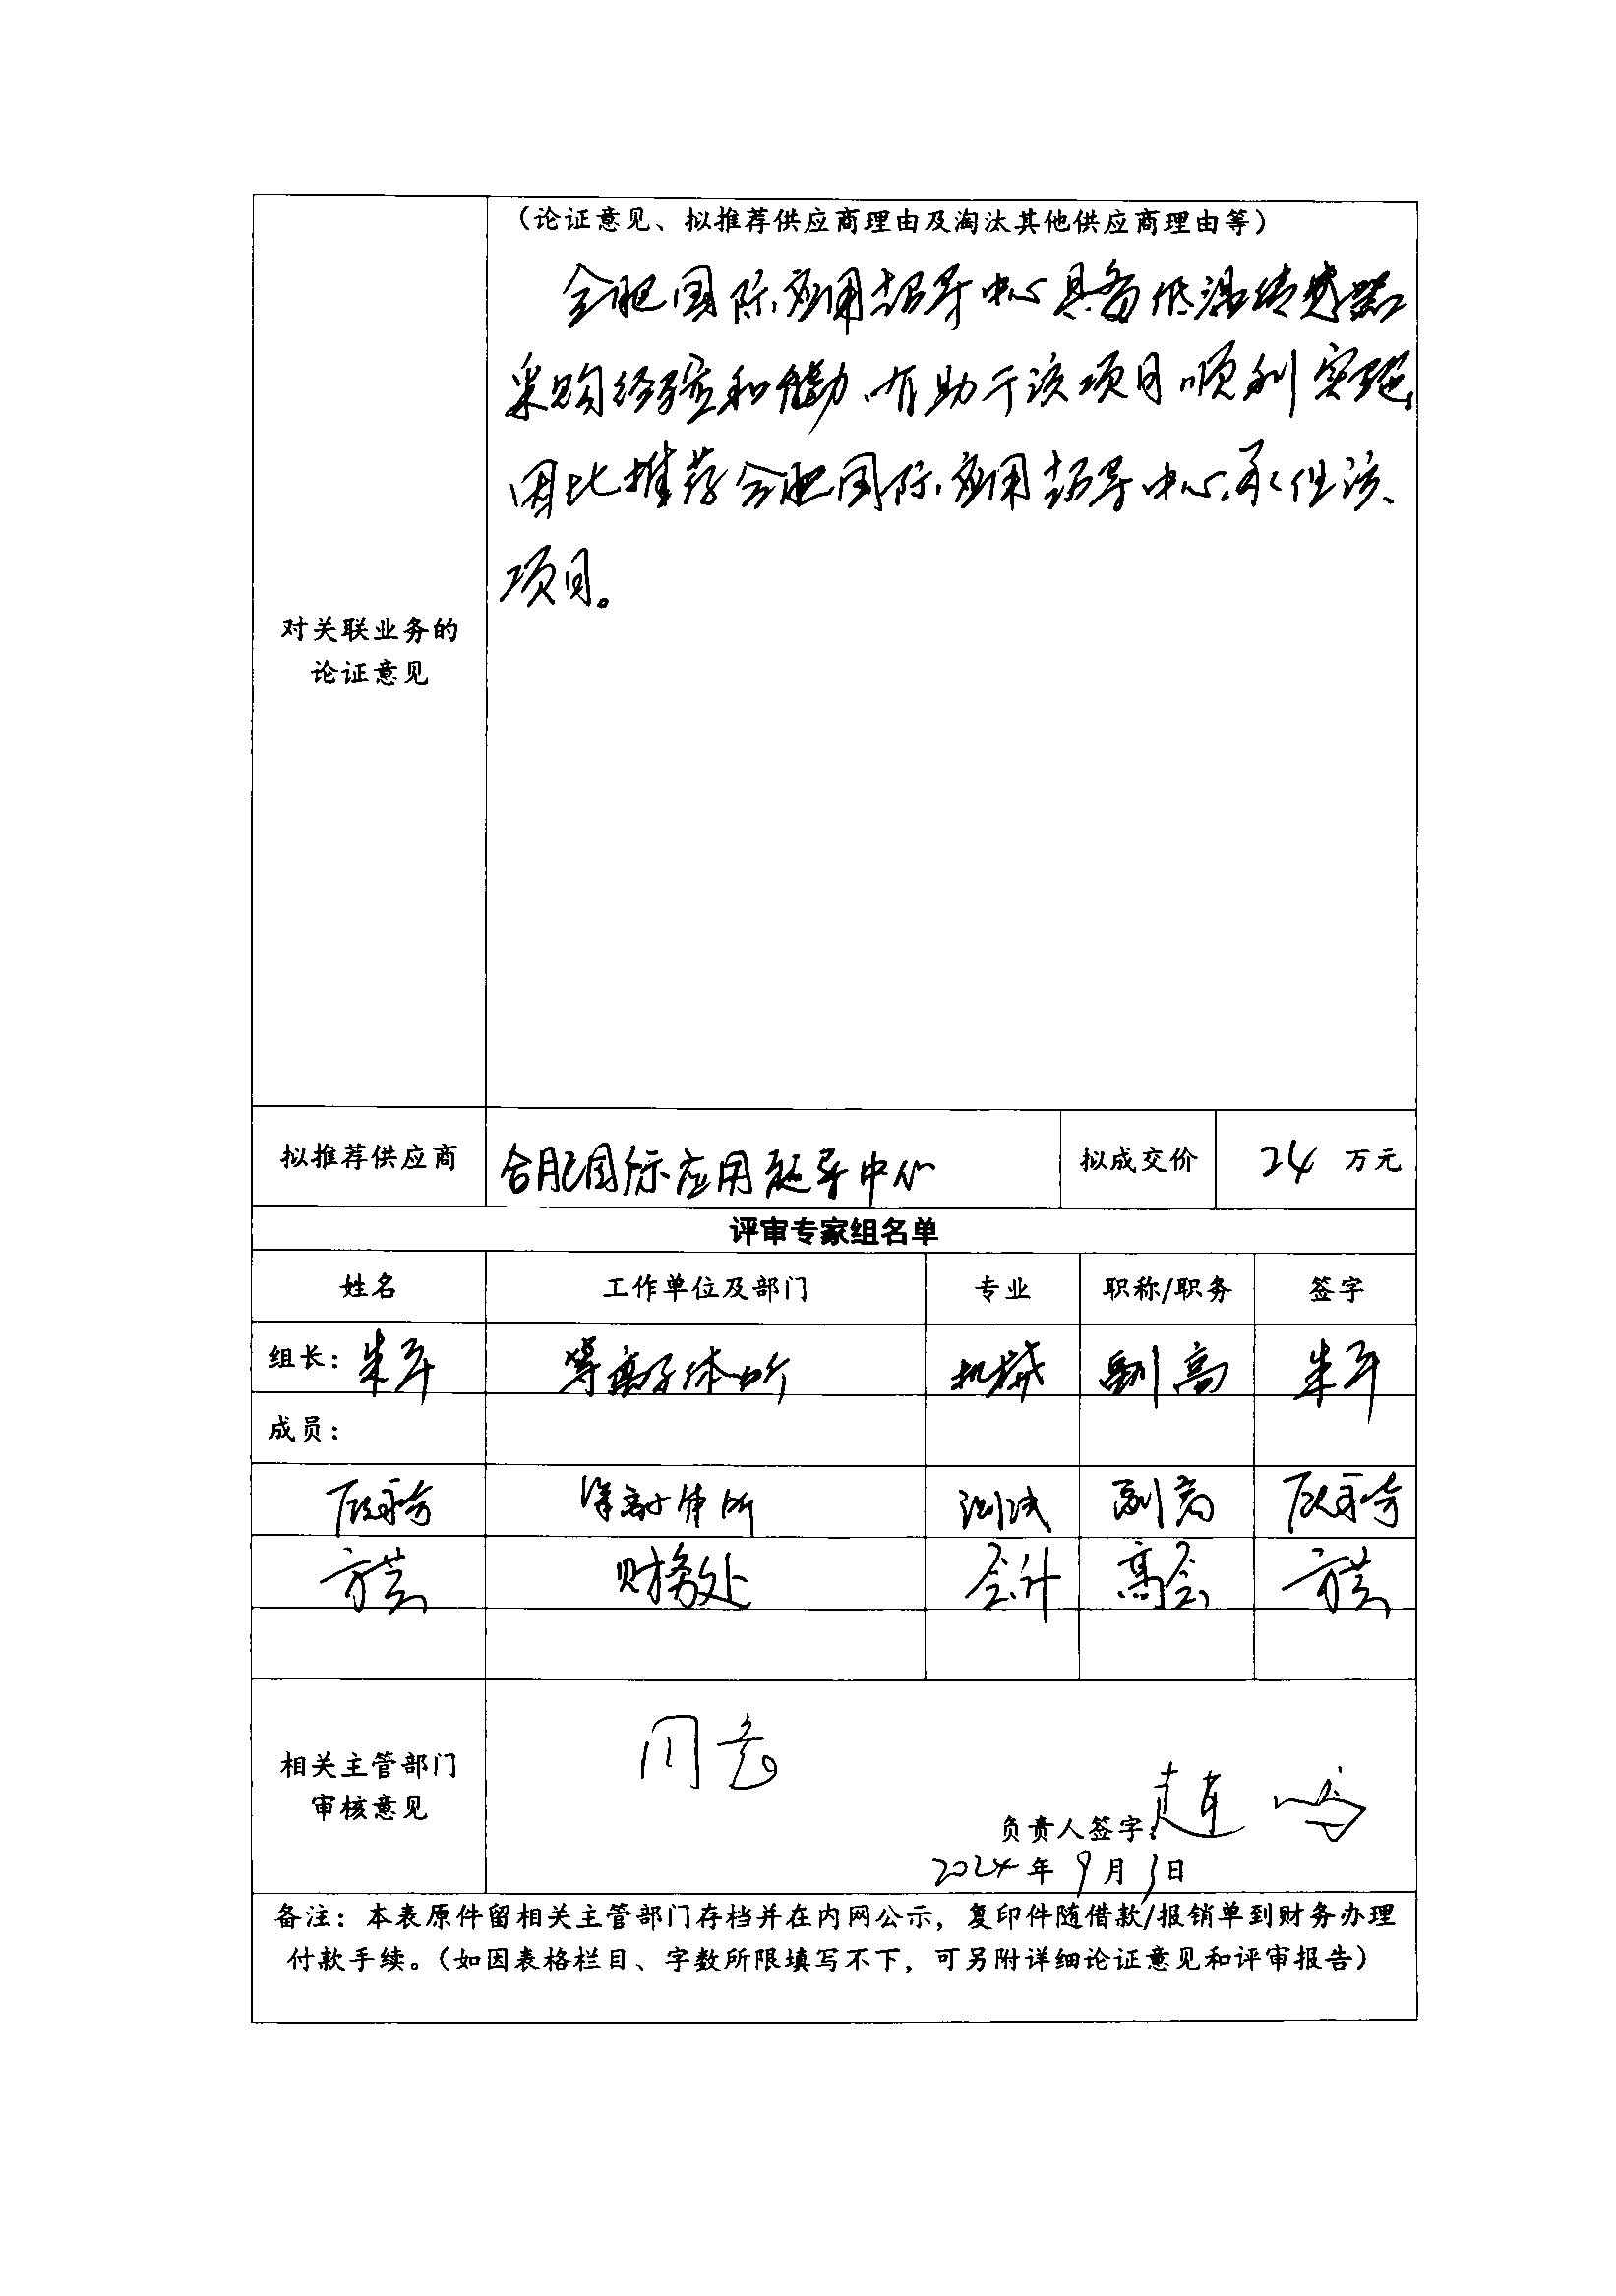 （论证意见、拟推荐供应商理由及淘汰其他供应商理由等）
合肥国际应用超导中心具备低温传感器
采购经验和能力，有助于该项目顺利实施，
因此推荐合肥国际应用超导中心承担该
项目。
对关联业务的
论证意见
拟推荐供应商 合肥国际应用超导中心 拟成交价 24 万元
评审专家组名单
姓名 工作单位及部门 专业 职称/职务 签字
组长：朱平 等离子体所 机械 副高 朱平
成员：
等离子体所 测试 副高
财务处 会计 高会
同意
相关主管部门
审核意见
负责人签字：
2024年9月 日
备注：本表原件留相关主管部门存档并在内网公示，复印件随借款/报销单到财务办理
付款手续。（如因表格栏目、字数所限填写不下，可另附详细论证意见和评审报告）